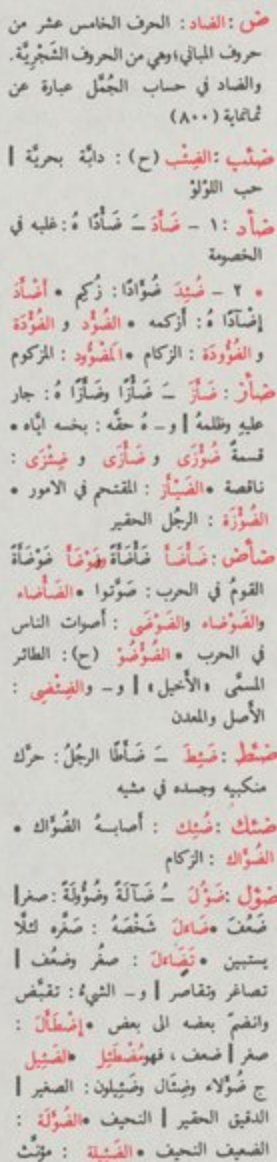 ض: الضاد: الحرف الخامس عشر من
حروف المباني؛ وهي من الحروف الشَّجْرِيَّة.
والضاد في حساب الجُمَّل عبارة عن
ثمانمائة (٨٠٠)
ضئب: الضِئْب (ح): دابَّة بحريَّة |
حب اللؤلؤ
ضأد: ١ - ضَأَدَ ـَ ضَأْدًا هُ: غلبه في
الخصومة
• ٢ - ضُئِدَ ضُؤَادًا: زُكِم • أَضْأَدَ
إضْآدًا هُ: أزكمه • الضُؤْد و الضُؤْدَة
و الضُؤُودَة: الزكام • المَضْؤُود: المزكوم
ضأز: ضَأَزَ ـَ ضَأْزًا وضَأَزًا هُ: جار
عليهِ وظلمهُ | و ـ هُ حقَّه: بخسه ايَّاه •
قسمةٌ ضُؤْزَى و ضَأْزَى و ضِئْزَى:
ناقصة • الضَيْأَز: المقتحم في الامور •
الضُؤْزَة: الرجُل الحقير
ضأض: ضَأْضَأَ ضَأْضَأَةً وضَوْضَأَ ضَوْضَأَةً
القومُ في الحرب: صَوَّتوا • الضَأْضَاء
والضَوْضاء والضَوْضَى: أصوات الناس
في الحرب • الضُؤْضُؤ (ح): الطائر
المسمَّى «الأخيل» | و ـ والضِئْضِئ:
الأصل والمعدن
ضئط: ضَئِطَ ـَ ضَأَطًا الرجُلُ: حرَّك
منكبيه وجسده في مشيه
ضئك: ضُئِك: أصابهُ الضُؤَاك •
الضُؤَاك: الزكام
ضؤل: ضَؤُلَ ـُ ضَآلَةً وضُؤُولَةً: صغر |
ضَعُفَ • ضَاءلَ شَخْصَهُ: صَغَّره لئلَّا
يستبين • تَضَاءلَ: صغُر وضعُف |
تصاغر وتقاصر | و ـ الشيءُ: تقبَّض
وانضمّ بعضه الى بعض • إضْطَأَلَ:
صغر | ضعف، فهو مُضْطَئِل • الضَئِيل
ج ضُؤَلاء وضِئَال وضَئِيلون: الصغير |
الدقيق الحقير | النحيف • الضُؤَلَة:
الضعيف النحيف • الضَئِيلة: مؤنَّث